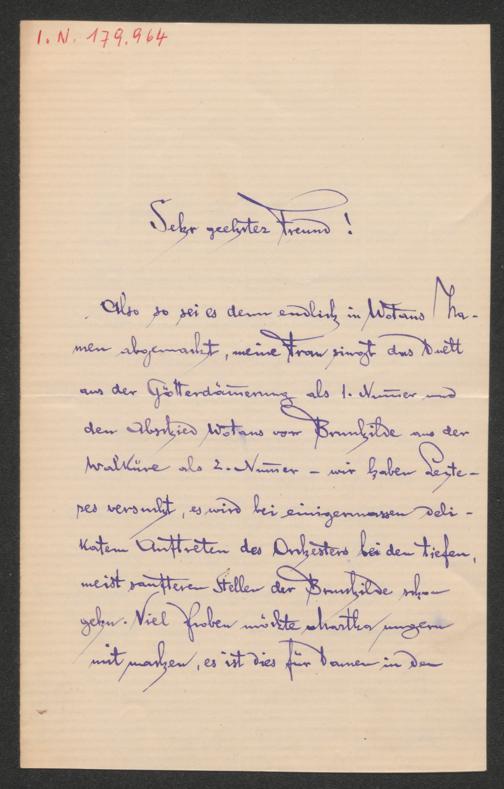 I. N. 179.964
Sehr geehrter Freund!
Also so sei es denn endlich in Wotans Na-
men abgemacht, meine Frau singt das Duett
aus der Götterdämmerung als 1. Nummer und
den Abschied Wotans von Brunhilde aus der
Walküre als 2. Nummer – wir haben Lezte-
res versucht, es wird bei einigermassen deli-
katem Auftreten des Orchesters bei den tiefen,
meist sanfteren Stellen der Brunhilde schon
gehn. Viel Proben möchte Martha ungern
mit machen, es ist dies für Damen in den